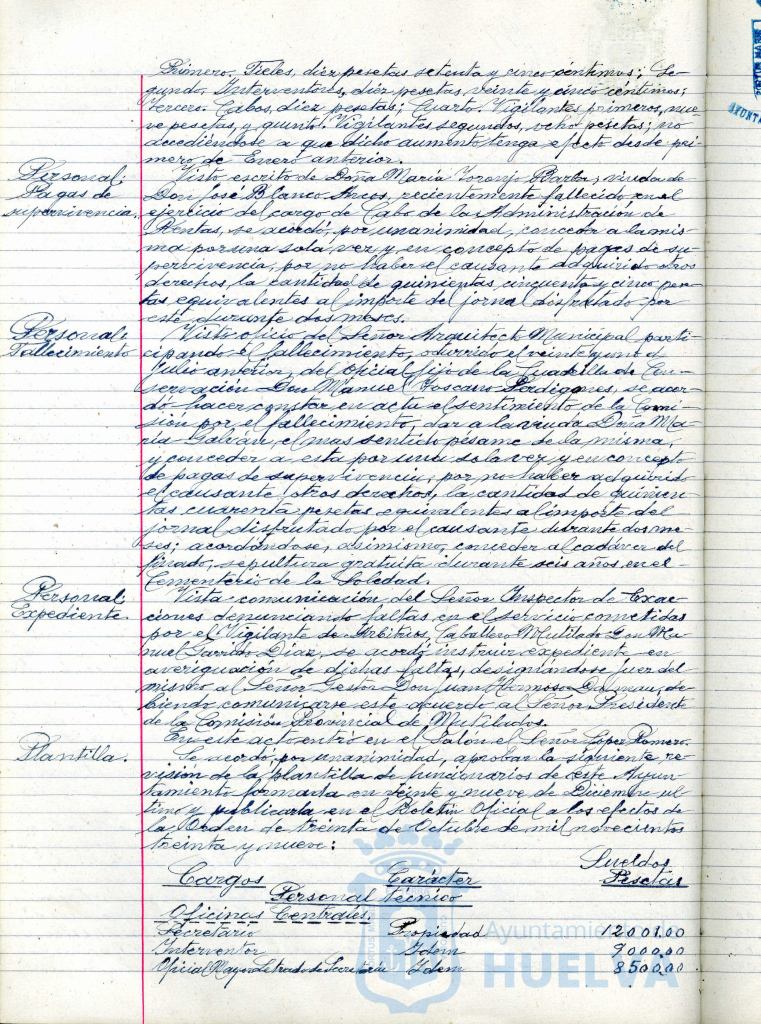 Primero. Fieles, diez pesetas setenta y cinco céntimos; Se-
gundo, Interventores, diez pesetas, veinte y cinco céntimos;
Tercero. Cabos, diez pesetas; Cuarto. Vigilantes primeros, nue-
ve pesetas, y quinto. Vigilantes segundos, ocho pesetas; no
accediéndose a que dicho aumento tenga efecto desde pri-
mero de Enero anterior.
Personal;
Pagas de
supervivencia.
Visto escrito de Doña María Toronjo Barba, viuda de
Don José Blanco Arcos, recientemente fallecido en el
ejercicio del cargo de Cabo de la Administración de
Rentas, se acordó, por unanimidad, conceder a la mis-
ma por una sola vez y en concepto de pagas de su-
pervivencia, por no haber el causante adquirido otros
derechos, la cantidad de quinientas cincuenta y cinco pese-
tas equivalentes al importe del jornal disfrutado por
este durante dos meses.
Personal;
Fallecimiento
Visto oficio del Señor Arquitecto Municipal parti-
cipando el fallecimiento, ocurrido el veinte y uno de
Julio anterior, del Oficial fijo de la Cuadrilla de Con-
servación Don Manuel Toscano Perdigones, se acor-
dó hacer constar en acta el sentimiento de la Comi-
sión por el fallecimiento, dar a la viuda Doña Ma-
ría Galván, el mas sentido pésame de la misma,
y conceder a esta por una sola vez y en concepto
de pagas de supervivencia, por no haber adquirido
el causante otros derechos, la cantidad de quinien-
tas cuarenta pesetas, equivalentes al importe del
jornal disfrutado por el causante durante dos me-
ses; acordándose, asimismo, conceder al cadáver del
finado, sepultura gratuita durante seis años en el
Cementerio de la Soledad.
Personal;
Expediente.
Vista comunicación del Señor Inspector de Exac-
ciones denunciando faltas en el servicio cometidas
por el Vigilante de Arbitrios, Caballero Mutilado Don Ma-
nuel Garrido Díaz, se acordó instruir expediente en
averiguación de dichas faltas, designándose juez del
mismo al Señor Gestor Don Juan Hermoso de-
biendo comunicarse este acuerdo al Señor Presidente
de la Comisión Provincial de Mutilados.
En este acto entró en el Salón el Señor López Romero.
Plantilla.
Se acordó por unanimidad, aprobar la siguiente re-
visión de la plantilla de funcionarios de este Ayun-
tamiento formada en veinte y nueve de Diciembre úl-
timo y publicarla en el Boletín Oficial a los efectos de
la Orden de treinta de Octubre de mil novecientos
treinta y nueve:
Sueldos
Cargos Carácter Pesetas
Personal técnico
Oficinas Centrales.
Secretario Propiedad 12001,00
Interventor Idem 9000,00
Oficial Mayor Letrado de Secretaría Idem 8500,00
Ayuntamiento de
HUELVA